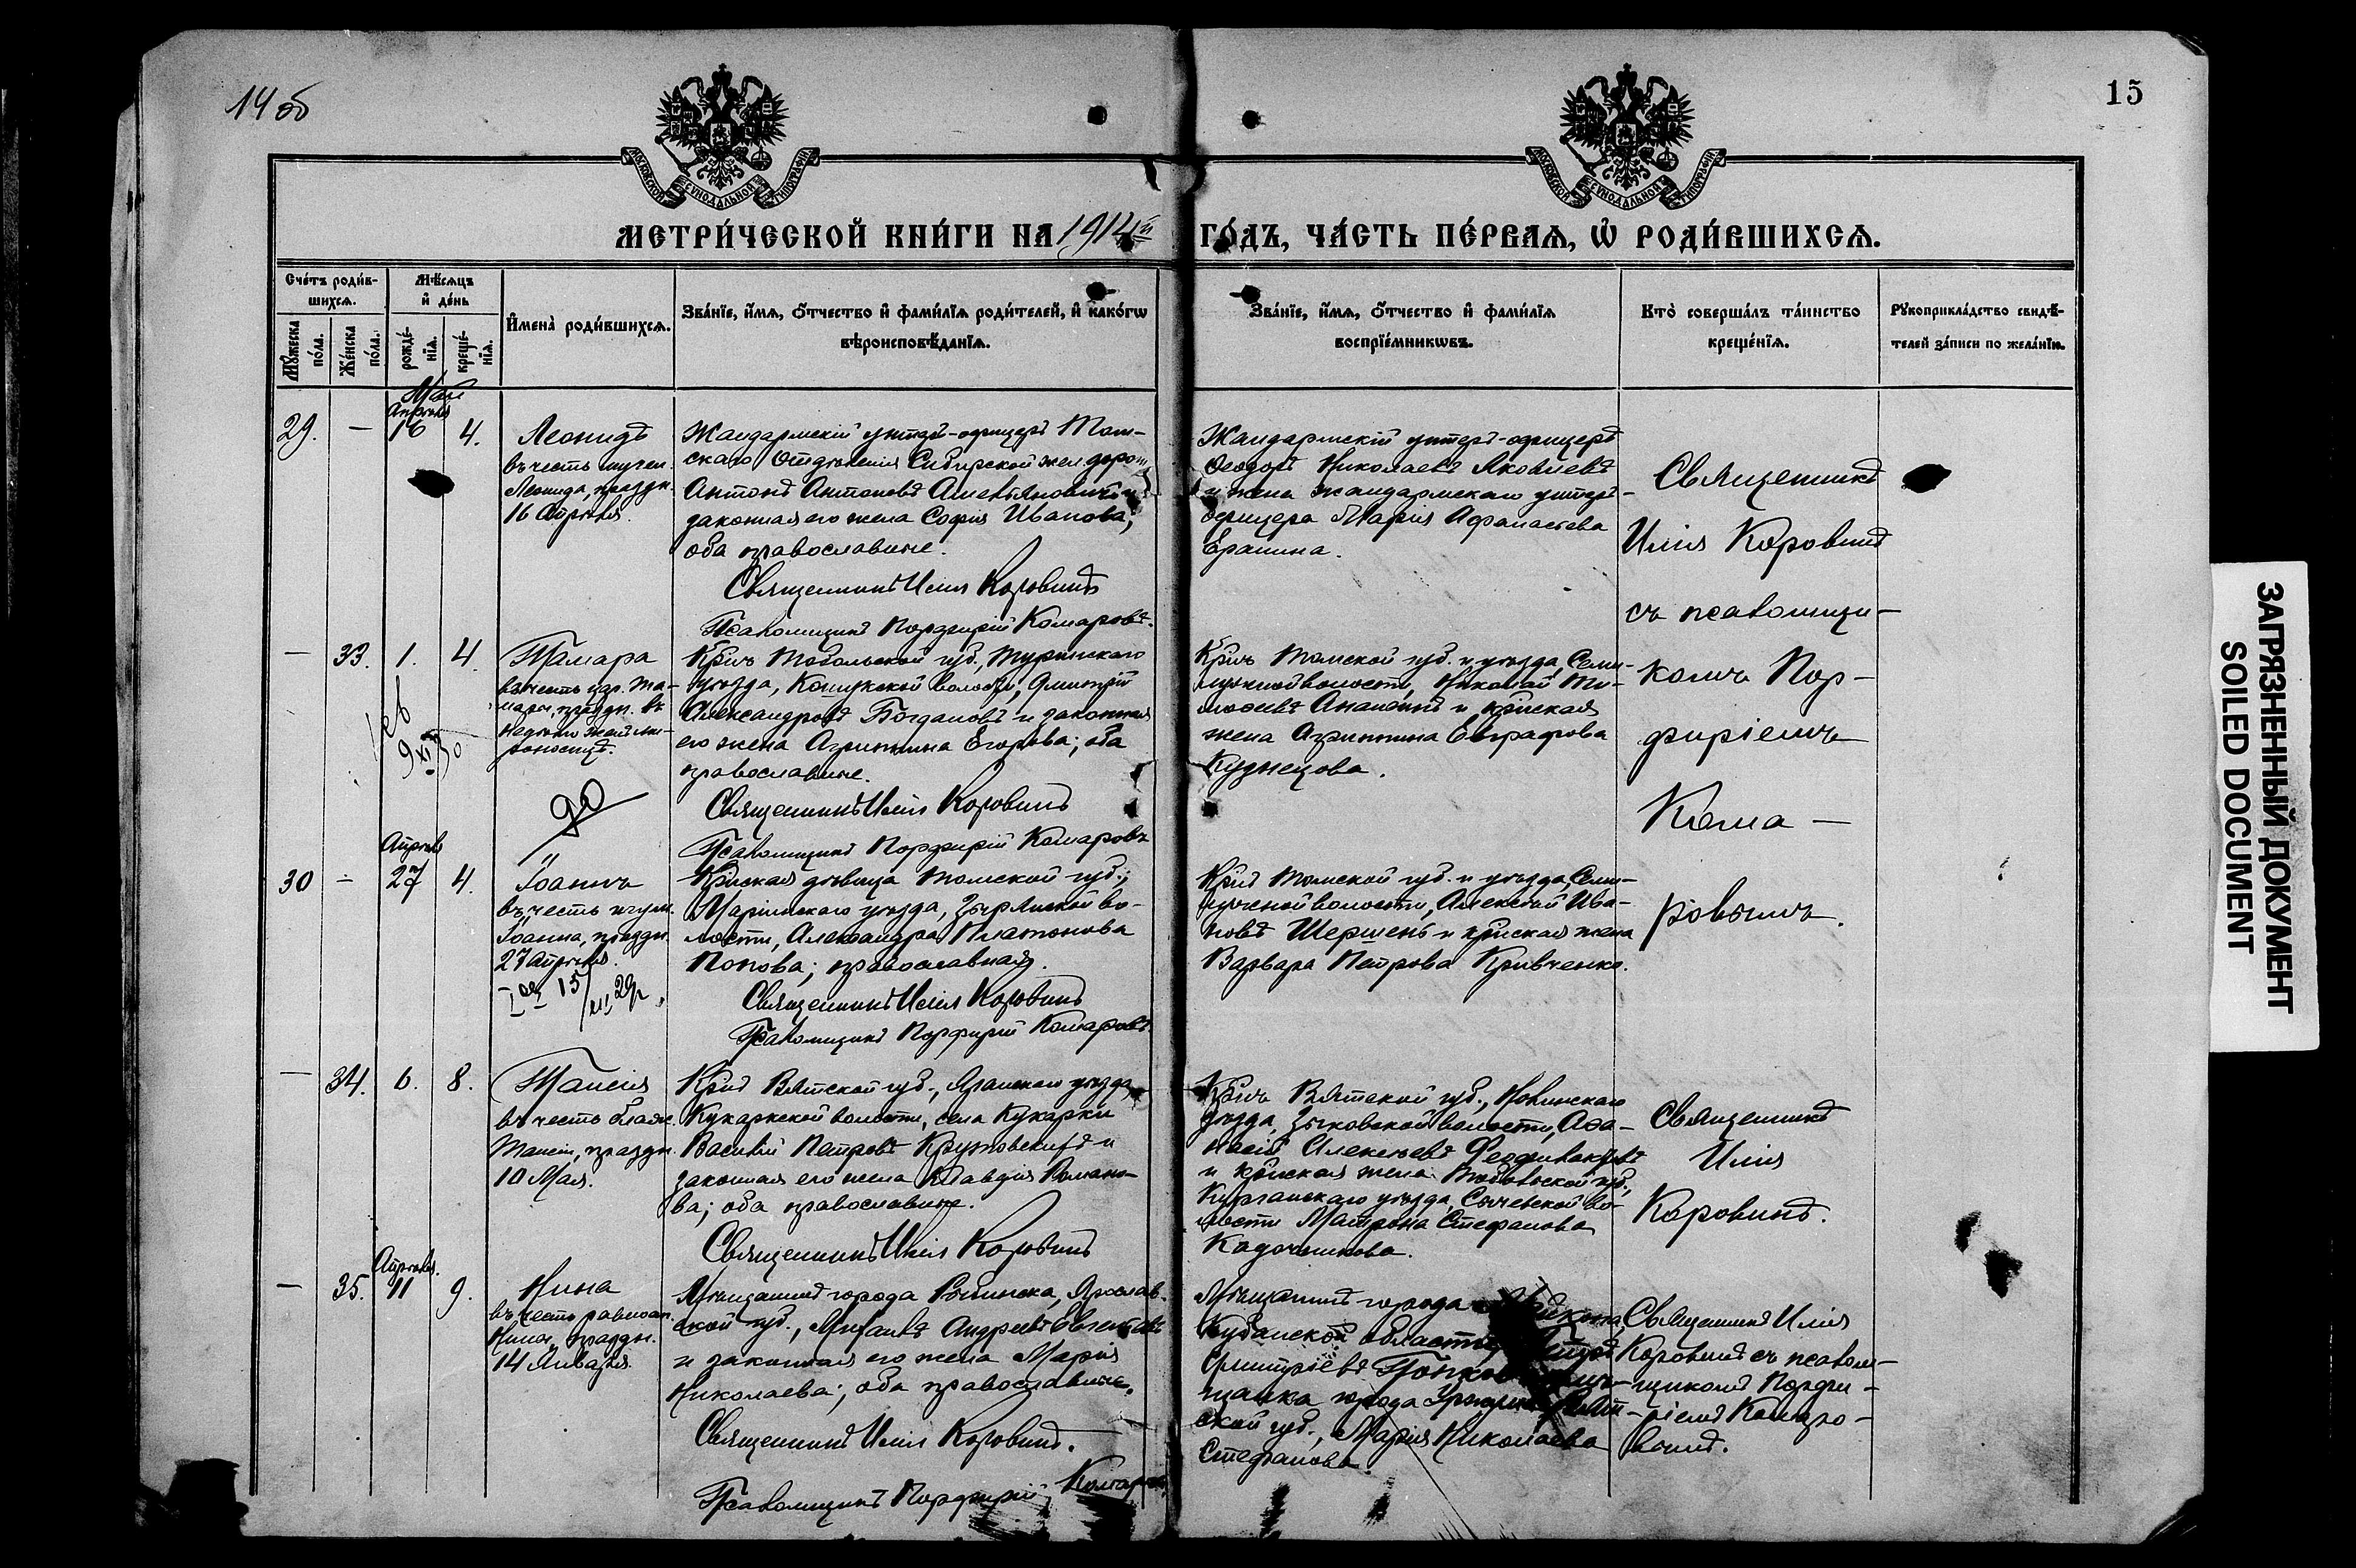 14 об
15
МОСКОВСКОЙ СѴНОДАЛЬНОЙ ТИПОГРАФІИ
МОСКОВСКОЙ СѴНОДАЛЬНОЙ ТИПОГРАФІИ
МЕТРИ́ЧЕСКОЙ КНИ́ГИ НА 1914й ГО́ДЪ, ЧА́СТЬ ПЕ́РВАЯ, Ѡ҆ РОДИ́ВШИХСЯ.
Сче́тъ роди́в-
шихся.
Мꙋ́жеска по́ла.
Же́нска по́ла.
Мѣ́сяцъ
и҆ де́нь
рожде́-
нїя.
креще́-
нїя.
И҆мена̀ роди́вшихся.
Зва́нїе, и҆́мя, ѻ҆́тчество и҆ фами́лїя роди́телей, и҆ како́гѡ
вѣроисповѣ́данїя.
Зва́нїе, и҆́мя, ѻ҆́тчество и҆ фами́лїя
воспрїе́мникѡвъ.
Кто̀ соверша́лъ та́инство
креще́нїя.
Рꙋкоприкла́дство свидѣ́-
телей за́писи по жела́нїю.
Май
Апрѣля
29.
—
16
4.
Леонидъ
въ честь мучен.
Леонида, праздн.
16 Апрѣля.
Жандармскій унтеръ-офицеръ Том-
скаго Отдѣленія Сибирской жел. дорог.
Антонъ Антоновъ и
законная его жена Софія Иванова;
оба православные.
Священникъ Илія Коровинъ
Псаломщикъ Порфирій Комаровъ.
Жандармскій унтеръ-офицеръ
Ѳеодоръ Николаевъ Яковлевъ
и жена жандармскаго унтеръ-
офицера Марія Афанасіева
Еранина.
Священникъ
Илія Коровинъ
съ псаломщи-
комъ Пор-
фиріемъ
Кома-
ровымъ.
—
33.
1.
4.
Тамара
въ честь цар. Та-
мары, праздн. въ
недѣлю женъ ми-
роносицъ.
Кр҃нъ Тобольской губ., Туринскаго
уѣзда, Кошукской волости, Димитрій
Александровъ Богдановъ и законная
его жена Агриппина Егорова; оба
православные.
Священникъ Илія Коровинъ
Псаломщикъ Порфирій Комаровъ
Кр҃нъ Томской губ. и уѣзда, Семи-
лужной волости, Николай Ти-
моѳеевъ Ананьинъ и кр҃нская
жена Агриппина Евграфова
Кузнецова.
Апрѣля
30
—
27
4.
Іоаннъ
въ честь
Іоанна, праздн.
27 Апрѣля.
Кр҃нская дѣвица Томской губ.,
Маріинскаго уѣзда, Зырянской во-
лости, Александра Платонова
Попова; православная.
Священникъ Илія Коровинъ
Псаломщикъ Порфирій Комаровъ
Кр҃нъ Томской губ. и уѣзда, Семи-
лужной волости, Алексѣй Ива-
новъ Шершень и кр҃нская жена
Варвара Петрова Кривченко.
—
34.
6.
8.
Таисія
въ честь блаж.
Таисіи, праздн.
10 Мая.
Кр҃нъ Вятской губ., Яранскаго уѣзда,
Кукаркской волости, села Кукарки
Василій Петровъ и
законная его жена Клавдія Романо-
ва; оба православные.
Священникъ Илія Коровинъ
Кр҃нъ Вятской губ., Нолинскаго
уѣзда, Зыковской волости, Аѳа-
насій Алексѣевъ Феофилактовъ
и кр҃нская жена Тобольской губ.,
Курганскаго уѣзда, Сычевской во-
лости Матрона Стефанова
Кадочникова.
Священникъ
Илія
Коровинъ.
Апрѣля.
—
35.
11
9.
Нина
въ честь равноап.
Нины, праздн.
14 Января.
Мѣщанинъ города Рыбинска, Ярослав-
ской губ., Михаилъ Андреевъ
и законная его жена Марія
Николаева; оба православные.
Священникъ Илія Коровинъ.
Псаломщикъ Порфирій Комаровъ
Мѣщанинъ города
Кубанской области,
Димитріевъ
щанка города
ской губ., Марія Николаева
Стефанова
Священникъ Илія
Коровинъ съ псалом-
щикомъ Порфи-
ріемъ Комаро-
вымъ.
ЗАГРЯЗНЕННЫЙ ДОКУМЕНТ
SOILED DOCUMENT